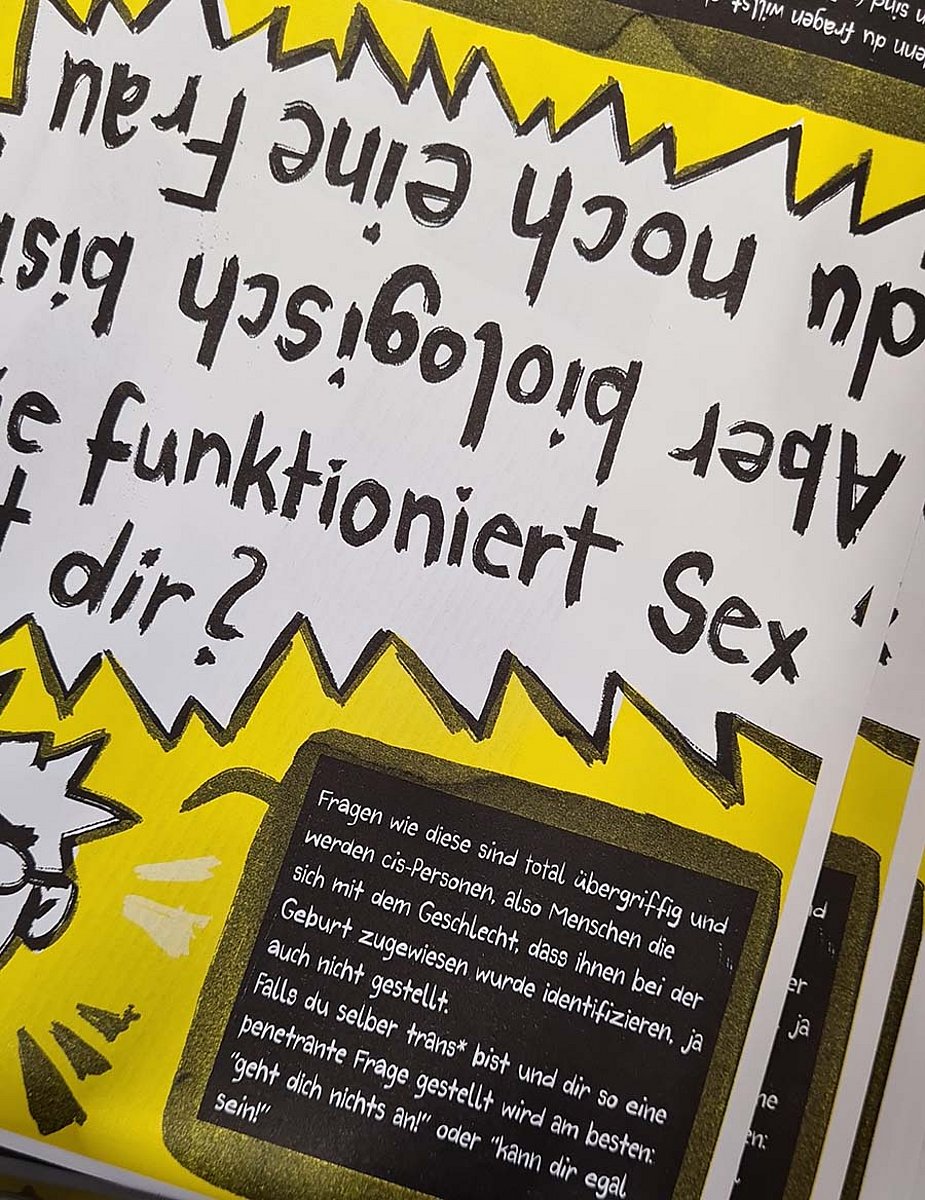 du fragen willst
sind
Aber biologisch bis
du noch eine Frau
e funktioniert Sex
t dir?
Fragen wie diese sind total übergriffig und
werden cis-Personen, also Menschen die
sich mit dem Geschlecht, dass ihnen bei der
Geburt zugewiesen wurde identifizieren, ja
auch nicht gestellt.
Falls du selber trans* bist und dir so eine
penetrante Frage gestellt wird am besten:
"geht dich nichts an!" oder "kann dir egal
sein!"
d
er
ja
ne
en: